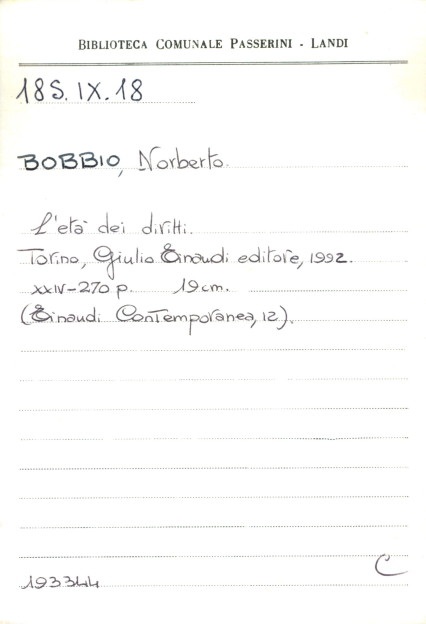 BIBLIOTECA COMUNALE PASSERINI - LANDI
18S.IX.18
BOBBIO, Norberto.
L'età dei diritti.
Torino, Giulio Einaudi editore, 1992.
XXIV-270 p. 19 cm.
(Einaudi Contemporanea, 12).
C
193344